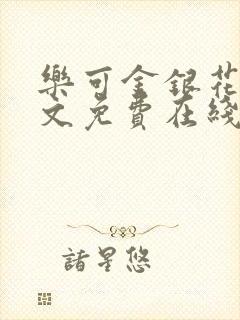 樂可金銀花
文免費在綫
諸星悠